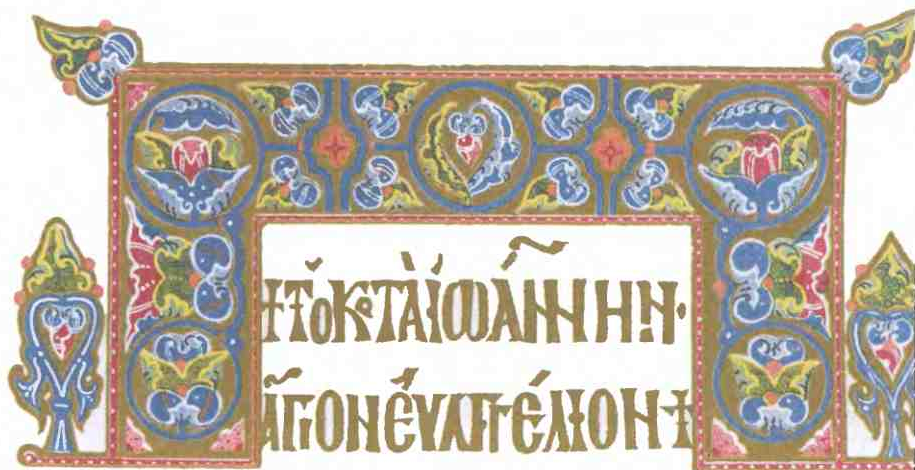 ☩ τὸ κατὰ ἰωάννην·
ἅγιον εὐαγγέλιον ☩